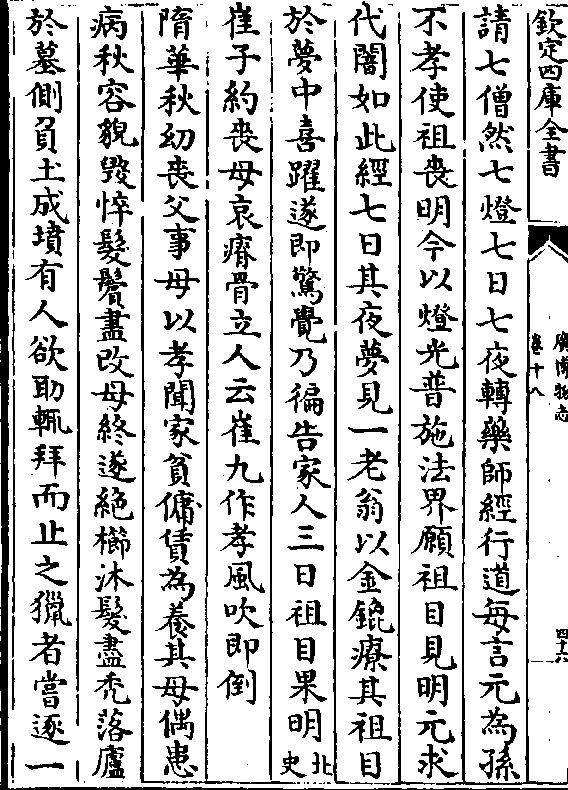 欽定四庫全書
廣博物志
卷十八
四十六
請七僧然七燈七日七夜轉藥師經行道每言元為孫
不孝使祖喪明今以燈光普施法界願祖目見明元求
代闇如此經七日其夜夢見一老翁以金鎞療其祖目
於夢中喜躍遂即驚覺乃徧告家人三日祖目果明北史
崔子約喪母哀瘠骨立人云崔九作孝風吹即倒
隋華秋幼喪父事母以孝聞家貧傭賃為養其母偶患
病秋容貌毁悴髮鬢盡改母終遂絶櫛沐髮盡禿落廬
於墓側負土成墳有人欲助輒拜而止之獵者嘗逐一